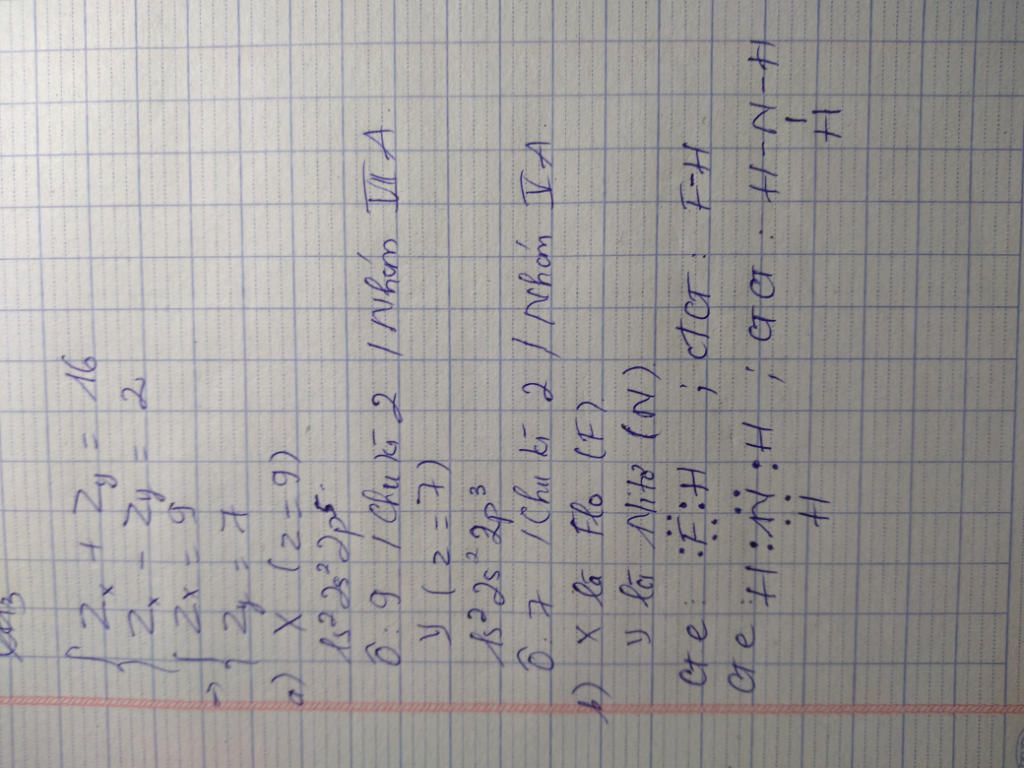 { Zx + Zy = 16
Zx - Zy = 2
=> { Zx = 9
Zy = 7
a) X (z = 9)
1s² 2s² 2p⁵
Ô: 9 / Chu kì 2 / Nhóm VII A
Y (z = 7)
1s² 2s² 2p³
Ô: 7 / Chu kì 2 / Nhóm V A
b) X là Flo (F)
Y là Nitơ (N)
CT e: :F:H ; CTCT: F-H
CT e: H:N:H ; CTCT: H-N-H
H
H